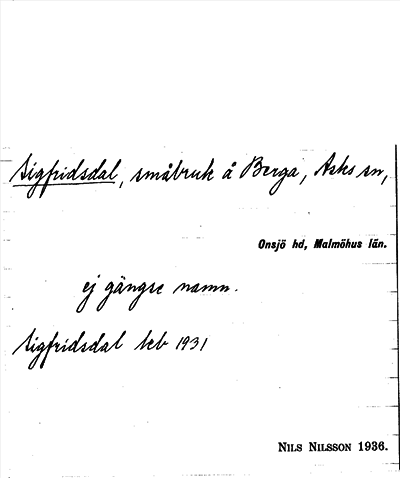 Sigfridsdal, småbruk å Berga, Asks sn,
Onsjö hd, Malmöhus län.
ej gängse namn.
Sigfridsdal teb 1931
NILS NILSSON 1936.